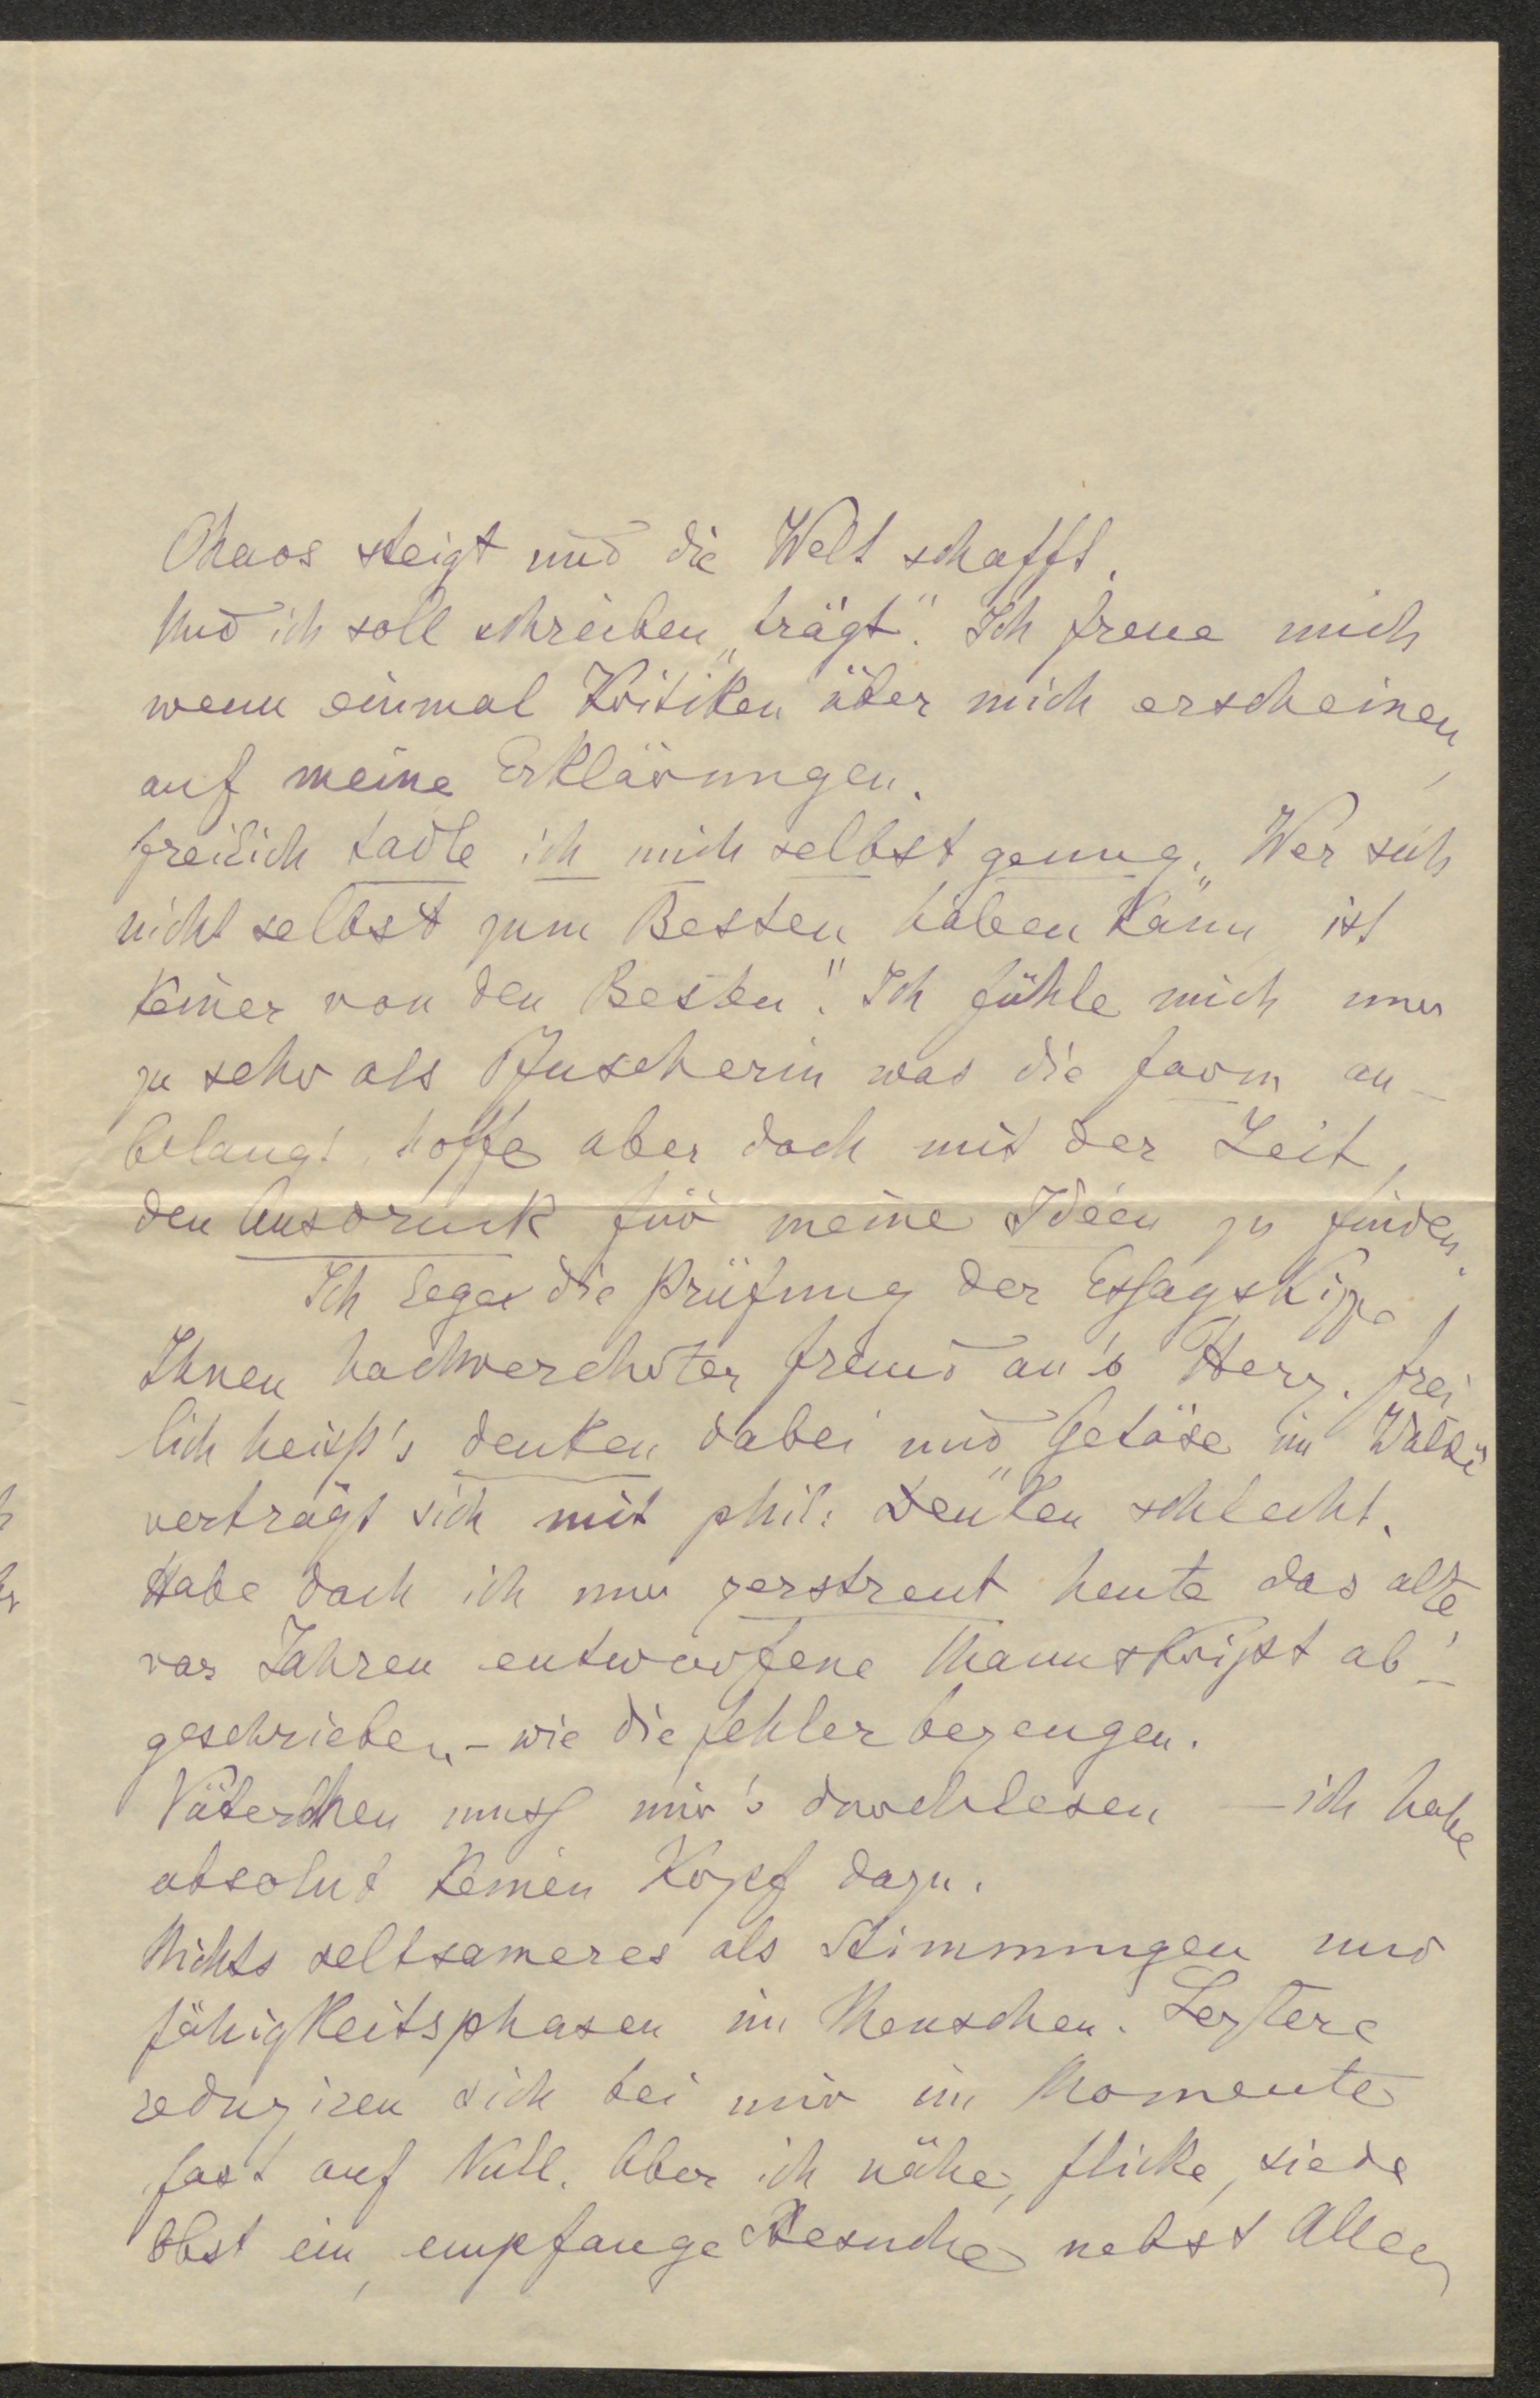 Chaos steigt und die Welt schafft.
Und ich soll schreiben „trägt". Ich freue mich
wenn einmal Kritiken über mich erscheinen,
auf meine Erklärungen.
Freilich tadle ich mich selbst genug. „Wer sich
nicht selbst zum Besten haben kann, ist
keiner von den Besten". Ich fühle mich nur
zu sehr als Pfuscherin was die Form an-
belangt, hoffe aber doch mit der Zeit,
den Ausdruck für meine Idéen zu finden.
Ich lege die Prüfung der Essayskizze
Ihnen hochverehrter Freund an's Herz. Frei
lich heißt's denken dabei und „Getöse im Wald"
verträgt sich mit phil: Denken schlecht.
Habe doch ich nur zerstreut heute das alte
vor Jahren entworfene Manuskript ab-
geschrieben, – wie die Fehler bezeugen.
Väterchen muß mir's durchlesen – ich habe
absolut keinen Kopf dazu.
Nichts seltsameres als Stimmungen und
Fähigkeitsphasen im Menschen. Leztere
reduziren sich bei mir im Momente
fast auf Null. Aber ich nähe, flicke, siede
Obst ein, empfange Besuche nebst Allen